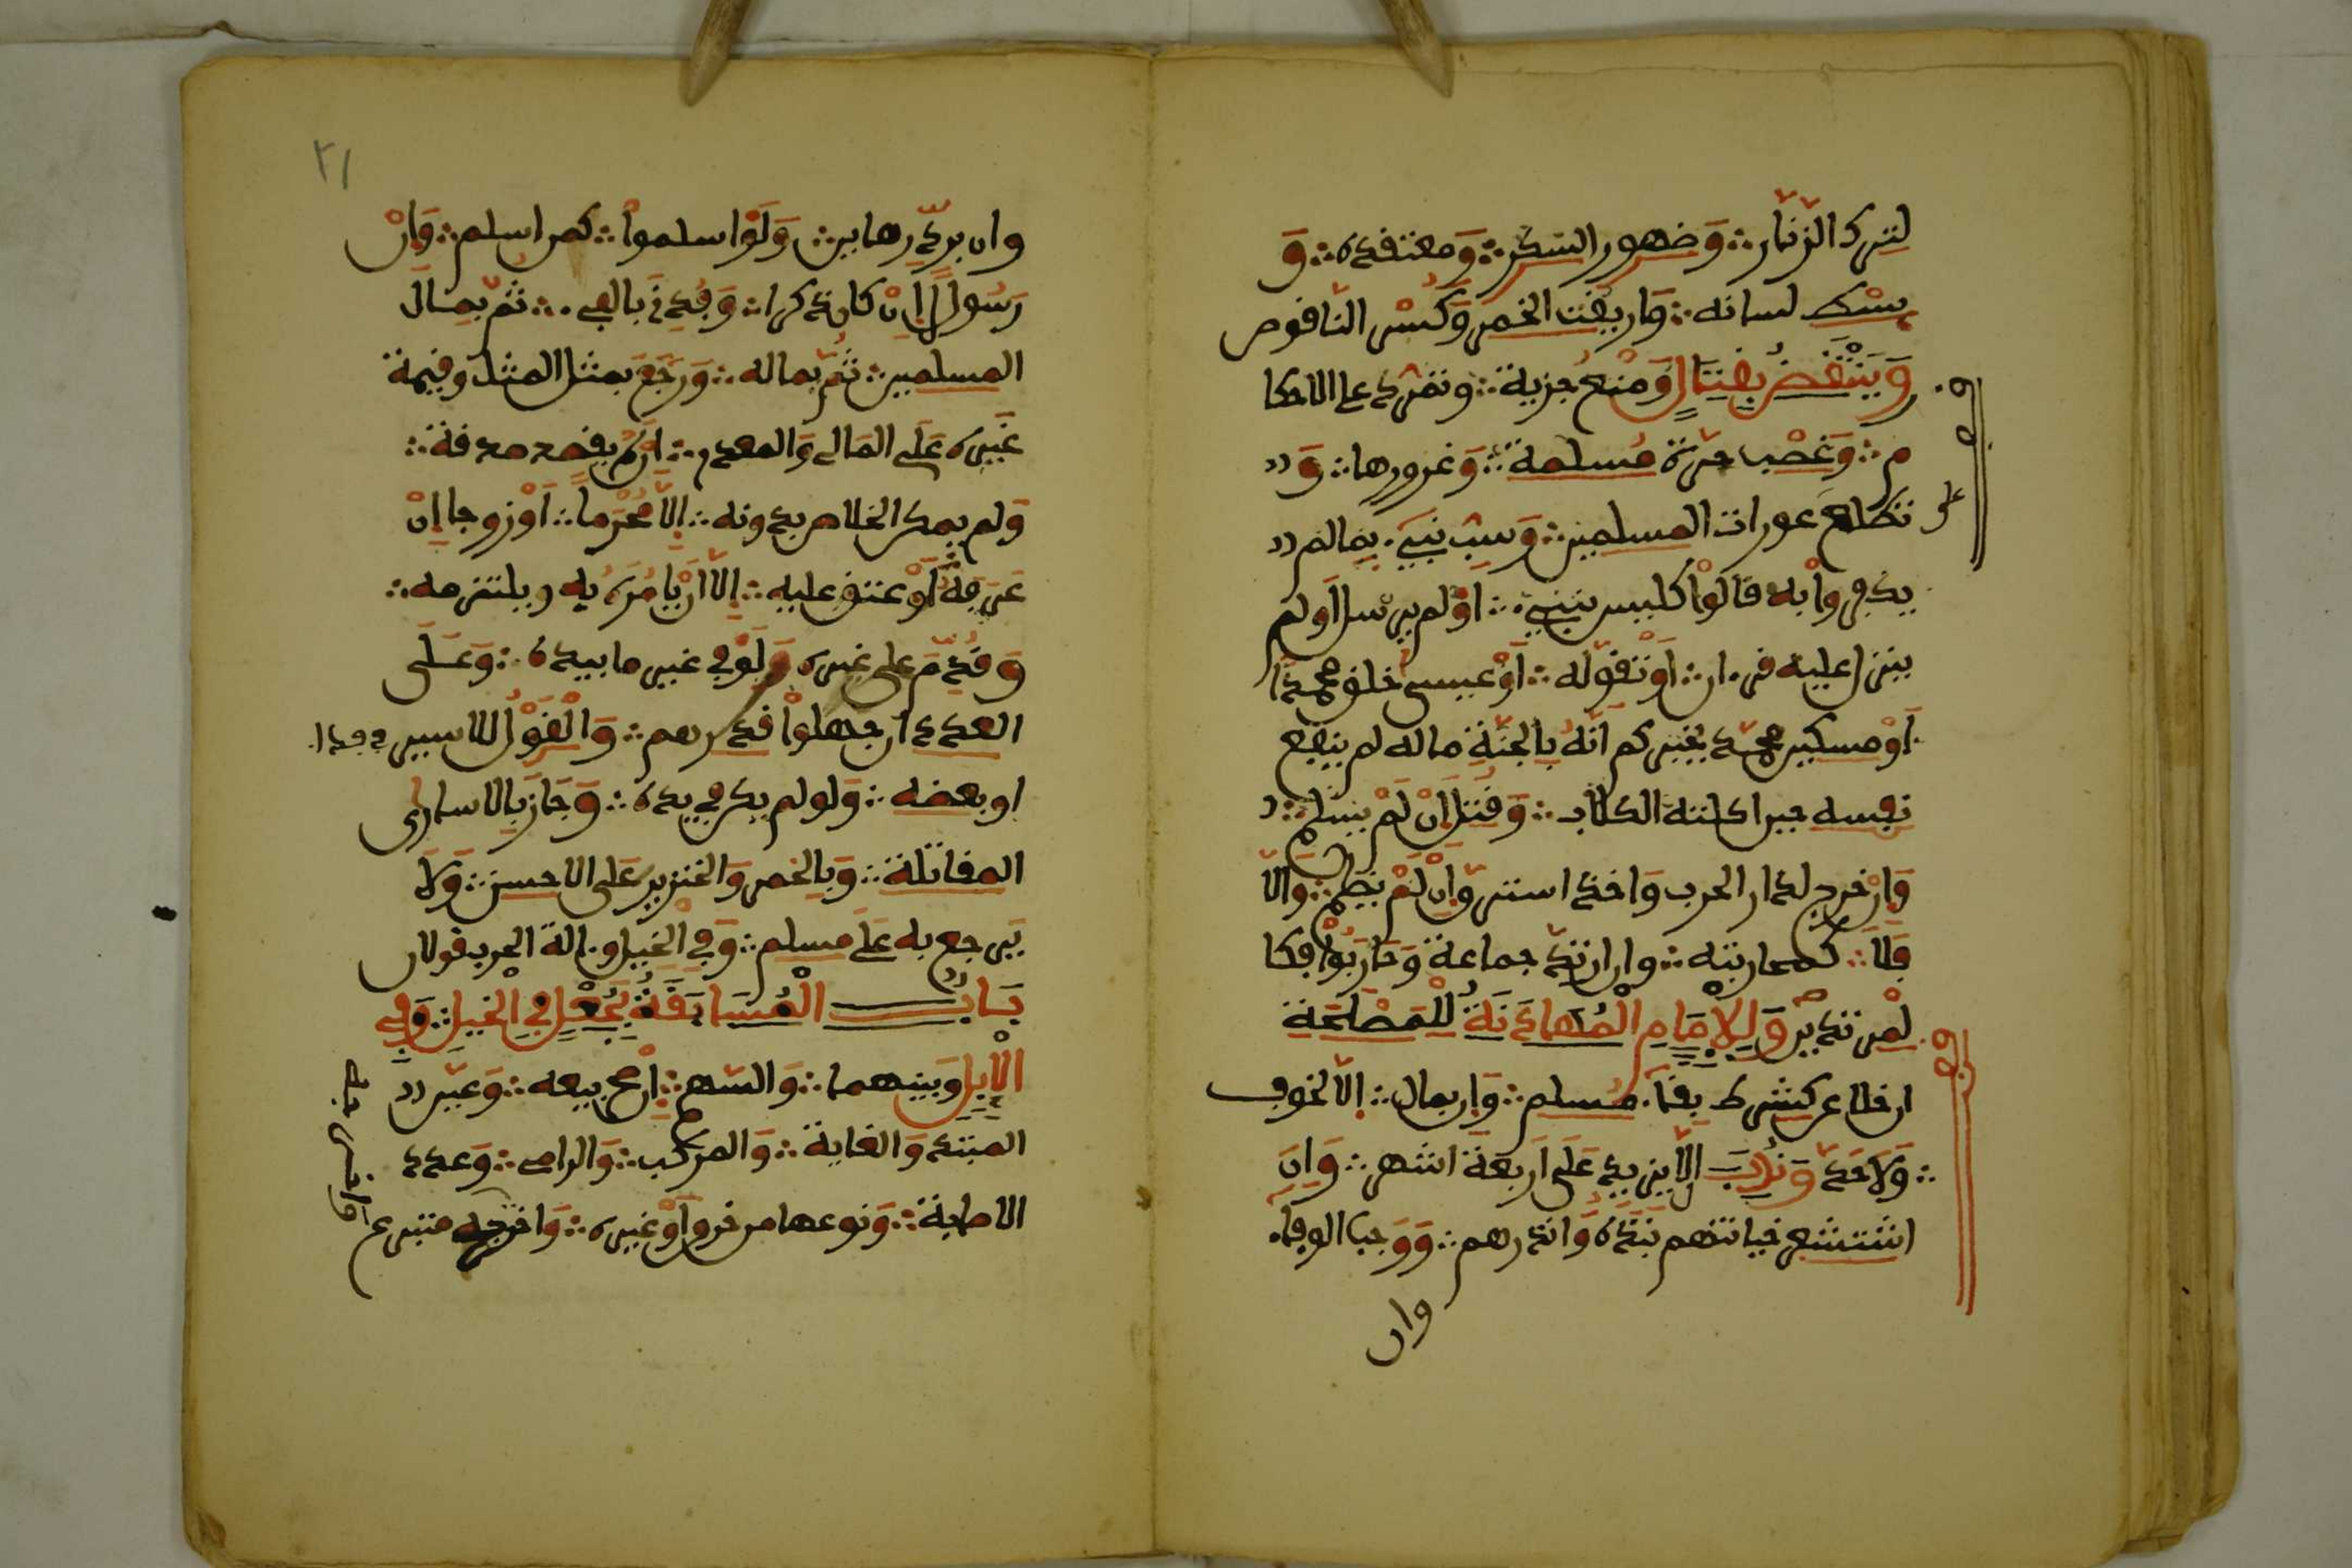 لترك الزنار وظهور السكر ومعتقده و
بسط لسانه واريقت الخمر وكسر الناقوس
وينتقض بقتال ومنع جزية وتمرد على الاحكا
م وغصب حرة مسلمة وغرورها و
تطلع على عورات المسلمين وسب نبيء بما لم
يكفروا به قالوا كليس بنبيء او لم يرسل او لم
ينزل عليه قرءان او تقوله او عيسى خلق محمدا
او مسكين محمد يخبركم انه بالجنة ماله لم ينفع
نفسه حين اكلته الكلاب وقتل ان لم يسلم
وان خرج لدار الحرب واخذ استرق ان لم يظلم والا
فلا كمحاربته وان ارتد جماعة وحاربوا فكا
لمرتدين وللامام المهادنة للمصلحة
ان خلا عن كشرط بقاء مسلم وان بمال الا لخوف
ولا حد وندب الا يزيد على اربعة اشهر وان
استشعر خيانتهم نبذه وانذرهم ووجب الوفاء
وان
٢١
وان برد رهاين ولو اسلموا كمن اسلم وان
رسولا ان كان ذكرا وفدي بالفيء ثم بمال
المسلمين ثم بماله ورجع بمثل المثل وقيمة
غيره على المالي والمعدم ان لم يقصد صدقة
ولم يمكن الخلاص بدونه الا محرما او زوجا ان
عرفه او عتق عليه الا ان يامره به ويلتزمه
وقدم على غيره ولو في غير ما بيده وعلى
العدد ان جهلوا قدرهم والقول للاسير في الفدا
او بعضه ولو لم يكن في يده وجاز بالاسارى
المقاتلة وبالخمر والخنزير على الاحسن ولا
يرجع به على مسلم وفي الخيل وءالة الحرب قولان
باب المسابقة بجعل في الخيل وفي
الابل وبينهما والسهم ان صح بيعه وعين
المبتدء والغاية والمركب والرامي وعدد
الاصابة ونوعها من خزق او غيره واخرجه متبرع